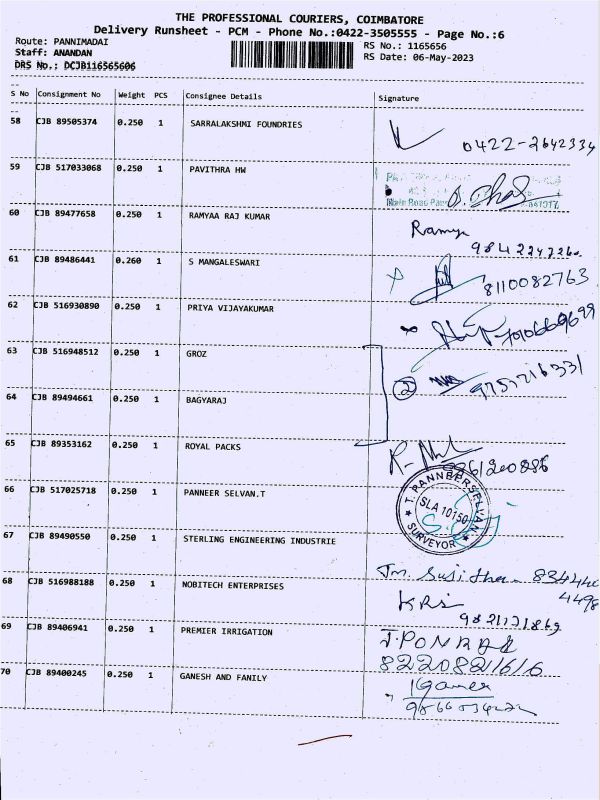 THE PROFESSIONAL COURIERS, COIMBATORE
Delivery Runsheet - PCM - Phone No.:0422-3505555 - Page No.:6
Route: PANNIMADAI
RS No.: 1165656
Staff: ANANDAN
RS Date: 06-May-2023
DRS No.: DCJB116565606
S No Consignment No Weight PCS Consignee Details Signature
58 CJB 89505374 0.250 1 SARRALAKSHMI FOUNDRIES
0422-2642334
59 CJB 517033068 0.250 1 PAVITHRA HW
Main Road
60 CJB 89477658 0.250 1 RAMYAA RAJ KUMAR
Ramya
61 CJB 89486441 0.260 1 S MANGALESWARI
8110082763
62 CJB 516930890 0.250 1 PRIYA VIJAYAKUMAR
63 CJB 516948512 0.250 1 GROZ
2 9757216331
64 CJB 89494661 0.250 1 BAGYARAJ
65 CJB 89353162 0.250 1 ROYAL PACKS
66 CJB 517025718 0.250 1 PANNEER SELVAN.T
T. PANNEERSELVAN
SLA 10150
SURVEYOR
67 CJB 89490550 0.250 1 STERLING ENGINEERING INDUSTRIE
68 CJB 516988188 0.250 1 NOBITECH ENTERPRISES
69 CJB 89406941 0.250 1 PREMIER IRRIGATION
J.PONRAJ
8220821616
70 CJB 89400245 0.250 1 GANESH AND FANILY